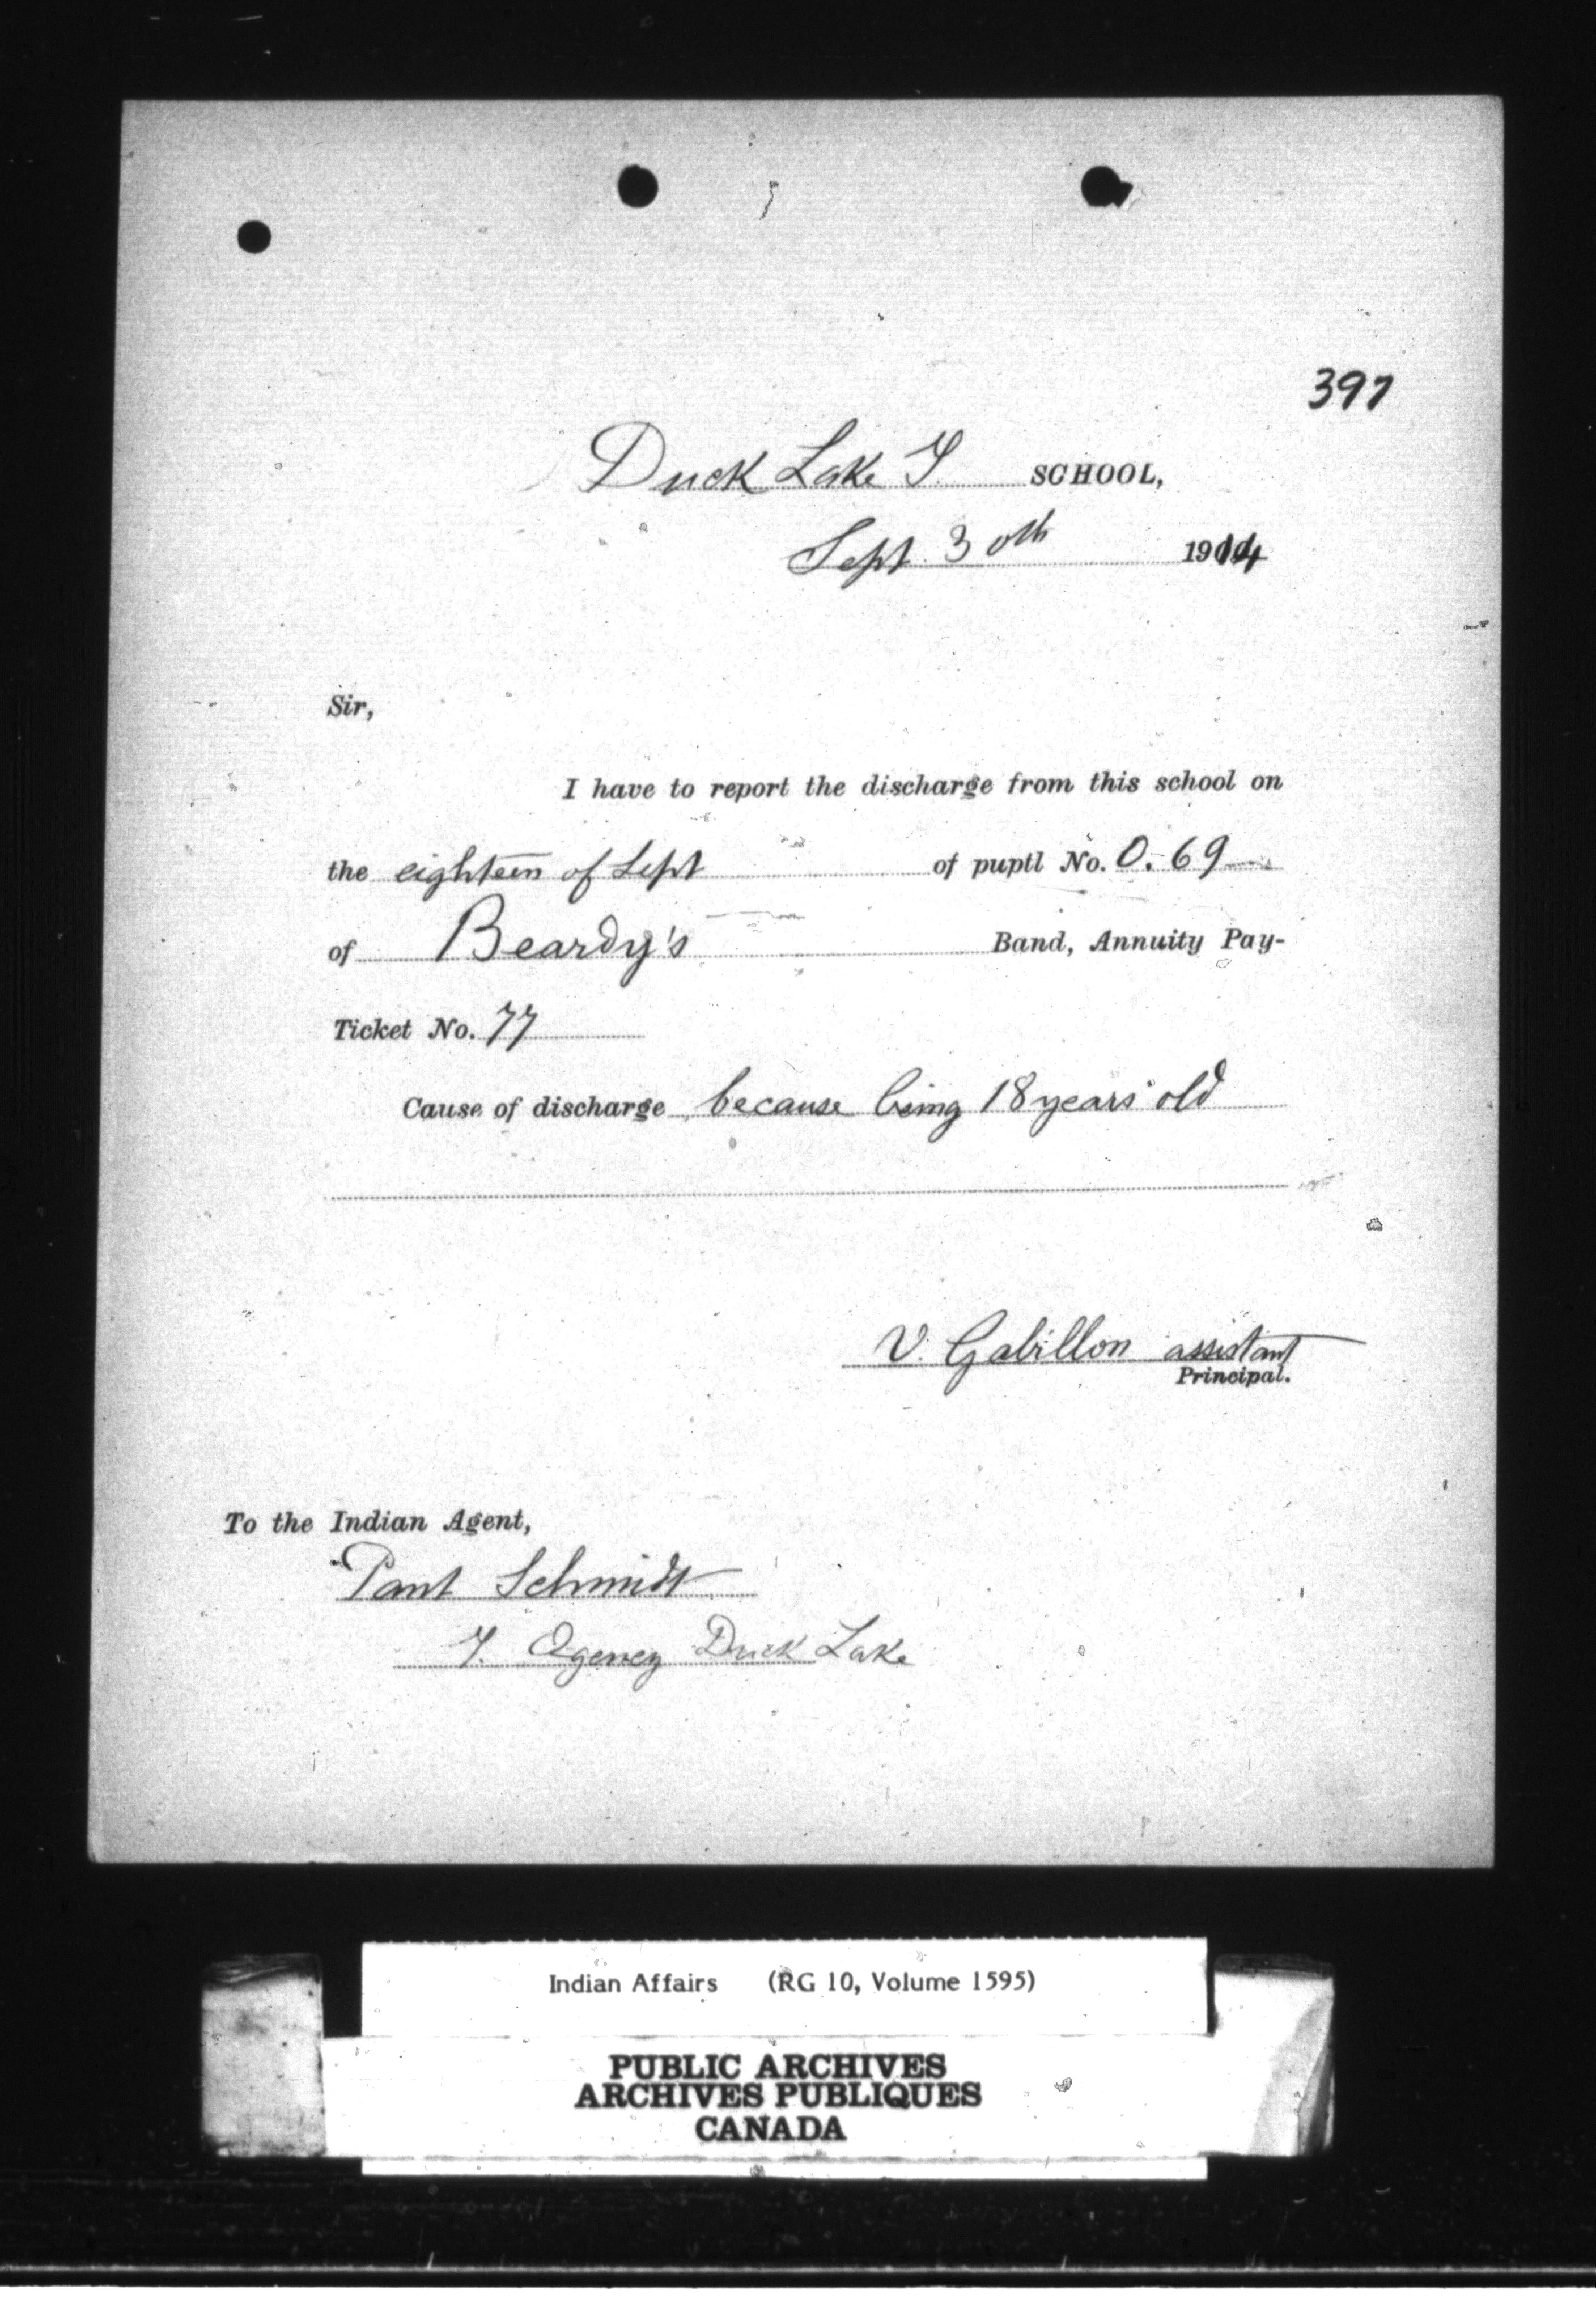 397
Duck Lake I. SCHOOL,
Sept 30th 1914
Sir,
I have to report the discharge from this school on
the eighteen of Sept of pupil No. 0.69
of Beardy's Band, Annuity Pay-
Ticket No. 77
Cause of discharge because being 18 years old
V. Gabillon assistant
Principal.
To the Indian Agent,
Paul Schmidt
I. Agency Duck Lake
Indian Affairs (RG 10, Volume 1595)
PUBLIC ARCHIVES
ARCHIVES PUBLIQUES
CANADA